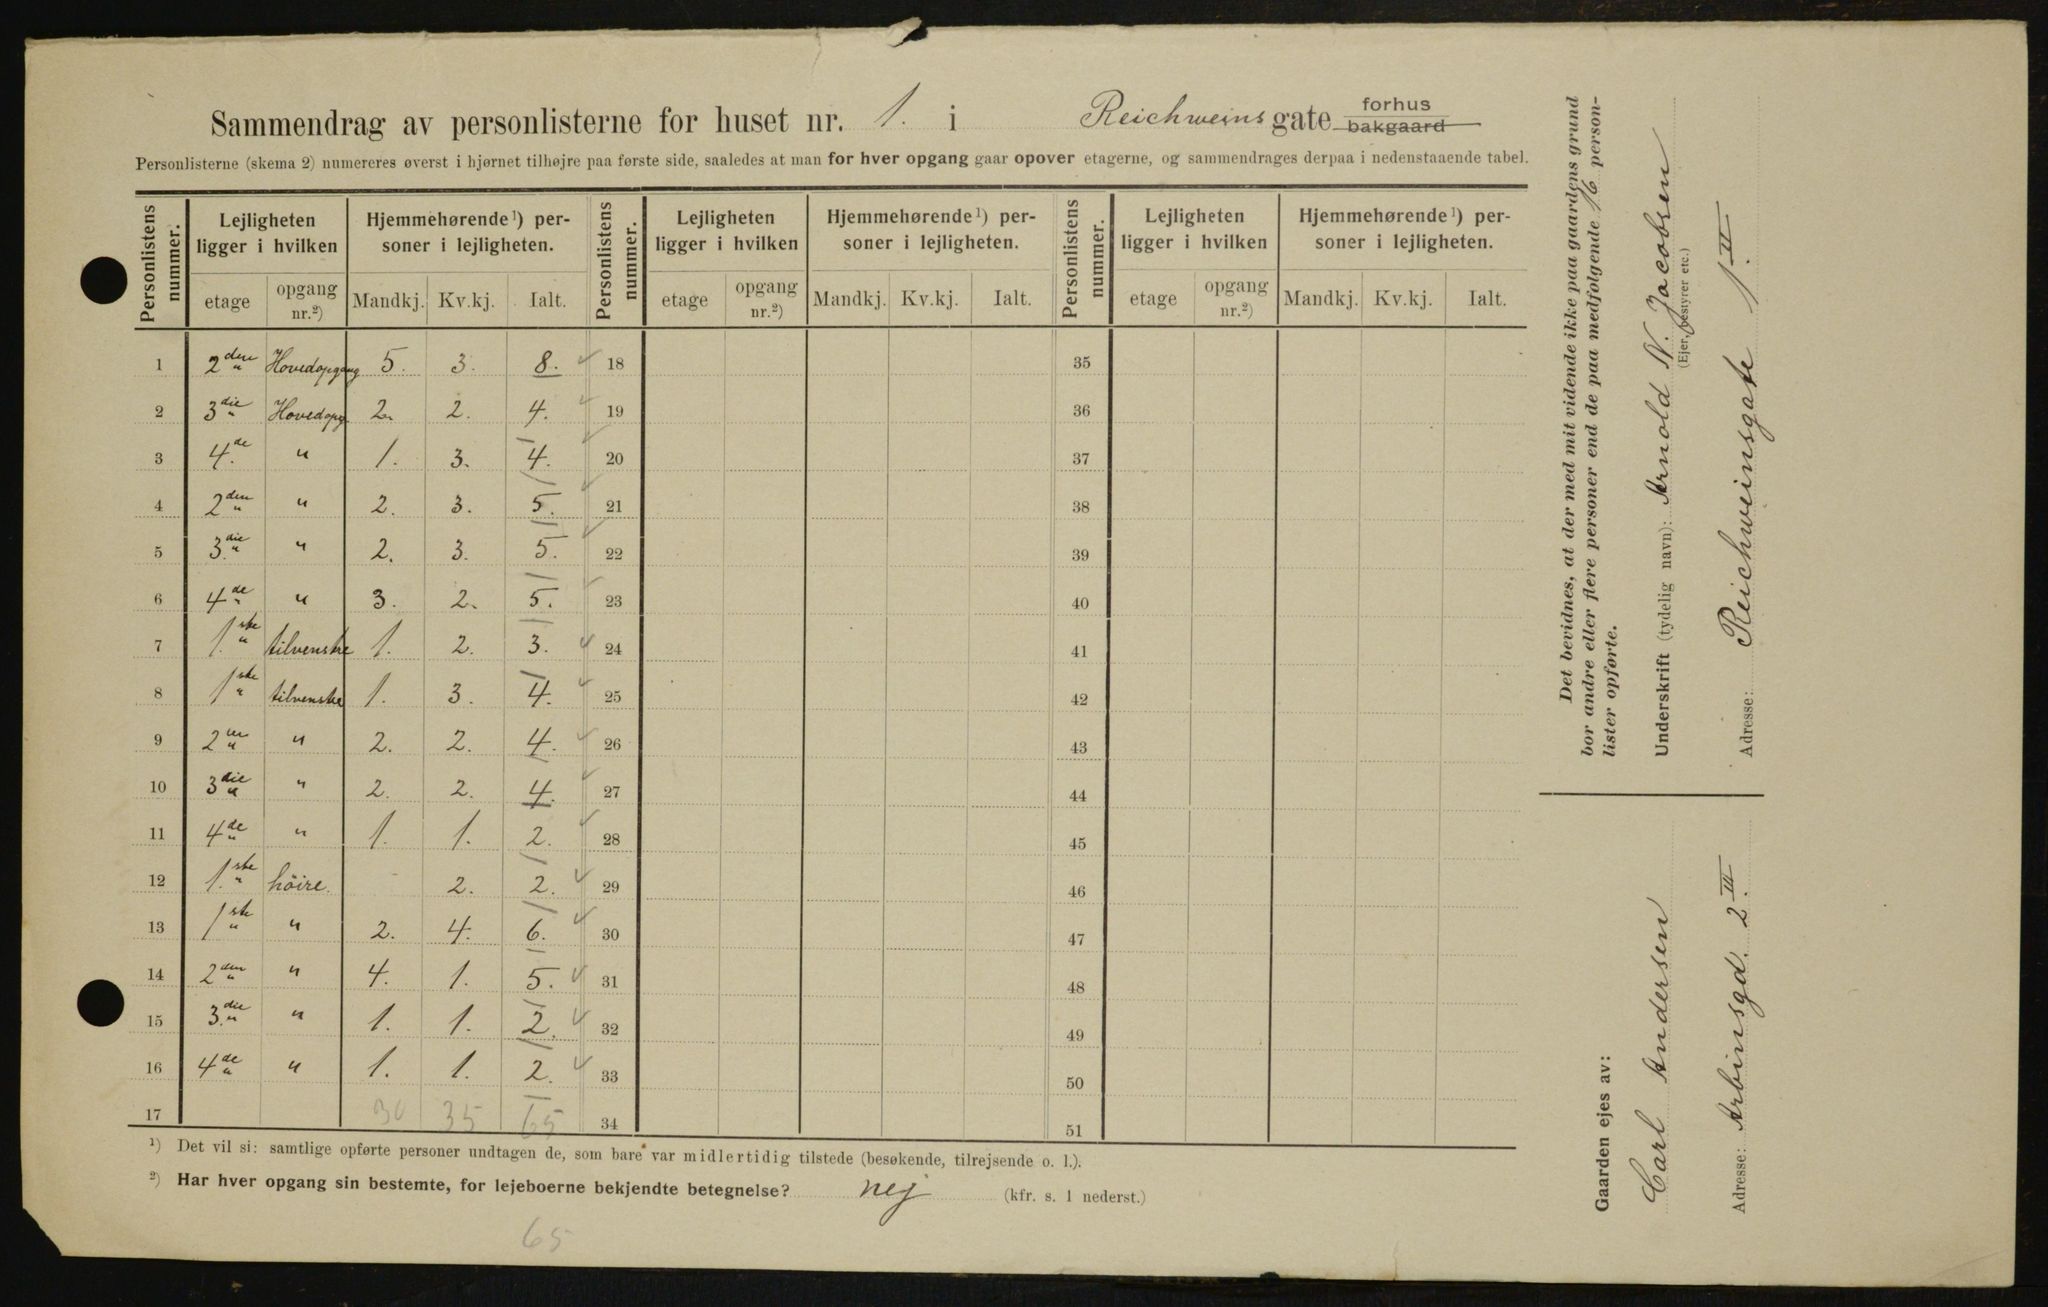 Sammendrag av personlisterne for huset nr. 1. i Reichweins gate forhus bakgaard
Personlisterne (skema 2) numereres øverst i hjørnet tilhøjre paa første side, saaledes at man for hver opgang gaar opover etagerne, og sammendrages derpaa i nedenstaaende tabel.
Personlistens nummer. Lejligheten ligger i hvilken Hjemmehørende ¹) personer i lejligheten. Personlistens nummer. Lejligheten ligger i hvilken Hjemmehørende ¹) personer i lejligheten. Personlistens nummer. Lejligheten ligger i hvilken Hjemmehørende ¹) personer i lejligheten.
etage opgang nr.²) Mandkj. Kv.kj. Ialt. etage opgang nr.²) Mandkj. Kv.kj. Ialt. etage opgang nr.²) Mandkj. Kv.kj. Ialt.
1 2den Hovedopgang 5. 3. 8. 18 35
2 3die Hovedopg. 2. 2. 4. 19 36
3 4.de " 1. 3. 4. 20 37
4 2den " 2. 3. 5. 21 38
5 3.die " 2. 3. 5. 22 39
6 4de " 3. 2. 5. 23 40
7 1.ste tilvenstre 1. 2. 3. 24 41
8 1ste tilvenstre 1. 3. 4. 25 42
9 2den " 2. 2. 4. 26 43
10 3die " 2. 2. 4. 27 44
11 4de " 1. 1. 2. 28 45
12 1.ste höire. 2. 2. 29 46
13 1ste " 2. 4. 6. 30 47
14 2den " 4. 1. 5. 31 48
15 3.die " 1. 1. 2. 32 49
16 4de " 1. 1. 2. 33 50
17 30 35 65 34 51
¹) Det vil si: samtlige opførte personer undtagen de, som bare var midlertidig tilstede (besøkende, tilrejsende o. l.).
²) Har hver opgang sin bestemte, for lejeboerne bekjendte betegnelse? nej (kfr. s. 1 nederst.)
65
Det bevidnes, at der med mit vidende ikke paa gaardens grund
bor andre eller flere personer end de paa medfølgende 16 person-
lister opførte.
Underskrift (tydelig navn): Arnold N. Jacobsen
(Ejer, bestyrer etc.)
Adresse: Reichweinsgate 1.II
Gaarden ejes av:
Carl Andersen
Adresse: Arbinsgd. 2.III